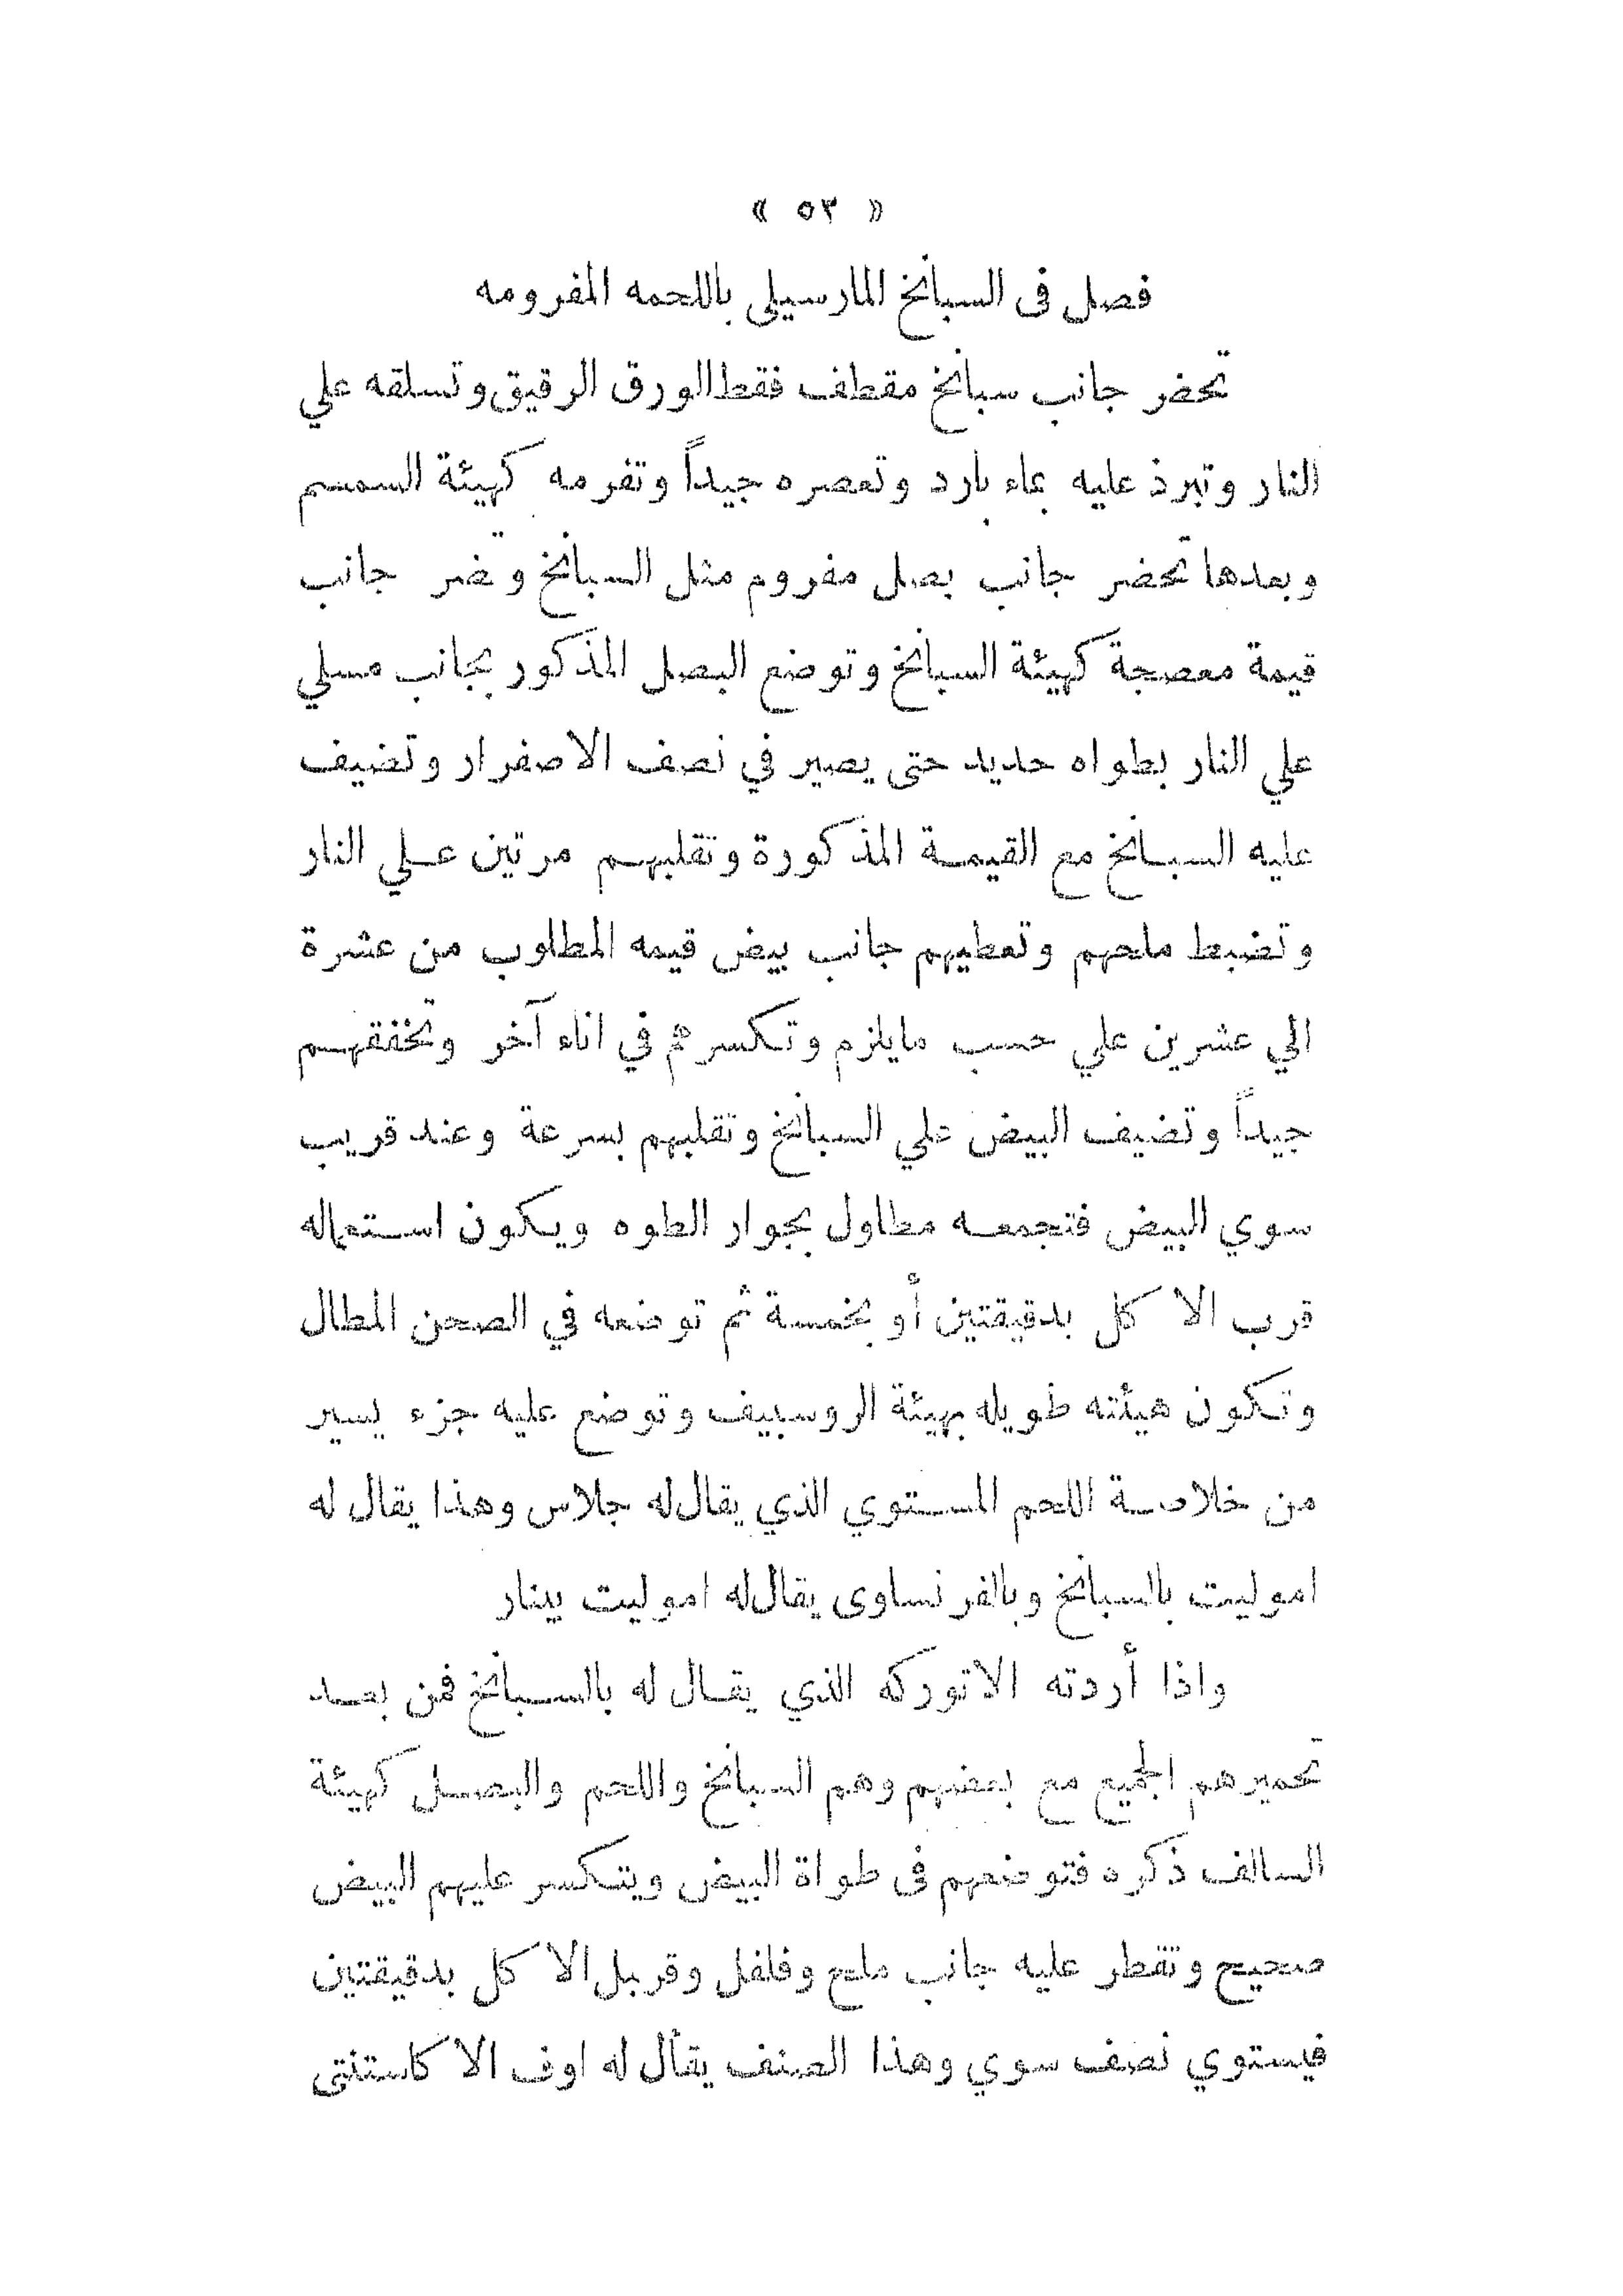 « ٥٣ »
فصل فى السبانخ المارسيلي باللحمه المفرومه
تحضر جانب سبانخ مقطف فقط الورق الرقيق وتسلقه علي
النار وتبرذ عليه بماء بارد وتعصره جيداً وتفرمه كهيئة السمسم
وبعدها تحضر جانب بصل مفروم مثل السبانخ وتحضر جانب
قيمة معصجة كهيئة السبانخ وتوضع البصل المذكور بجانب مسلي
علي النار بطواه حديد حتى يصير في نصف الاصفرار وتضيف
عليه السبانخ مع القيمة المذكورة وتقلبهم مرتين علي النار
وتضبط ملحهم وتعطيهم جانب بيض قيمه المطلوب من عشرة
الي عشرين علي حسب مايلزم وتكسرهم في اناء آخر وتخفقهم
جيداً وتضيف البيض علي السبانخ وتقلبهم بسرعة وعند قريب
سوي البيض فتجمعه مطاول بجوار الطوه ويكون استعماله
قرب الاكل بدقيقتين أو بخمسة ثم توضعه في الصحن المطال
وتكون هيئته طويله بهيئة الروسبيف وتوضع عليه جزء يسير
من خلاصة اللحم المستوي الذي يقال له جلاس وهذا يقال له
اموليت بالسبانخ وبالفرنساوى يقال له اموليت بينار
واذا أردته الاتوركه الذي يقال له بالسبانخ فمن بعد
تحميرهم الجميع مع بعضهم وهم السبانخ واللحم والبصل كهيئة
السالف ذكره فتوضعهم فى طواة البيض ويتكسر عليهم البيض
صحيح وتقطر عليه جانب ملح وفلفل وقربل الاكل بدقيقتين
فيستوي نصف سوي وهذا الصنف يقال له اوف الاكاستنتى